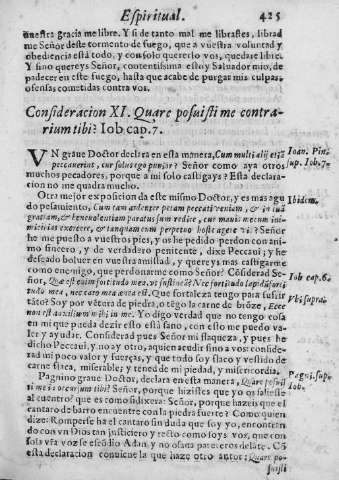 Espiritual. 425
vuestra gracia me libre. Y si de tanto mal me librastes, librad
me Señor deste tormento de fuego, que a vuestra voluntad y
obediencia está todo, y con solo quererlo vos, quedarè libre.
Y si no quereys Señor, contentissima estoy Salvador mio, de
padecer en este fuego, hasta que acabe de purgar mis culpas,
ofensas cometidas contra vos.
Consideracion XI. Quare posuisti me contra-
rium tibi? Iob cap. 7.
VN graue Doctor declara en esta manera, Cum multi alij
peccauerint, cur solus ego punior? Señor como aya otros
muchos pecadores, porque a mi solo castigays? Esta declara
cion no me quadra mucho.
Otra mejor exposicion da este mismo Doctor, y es mas agu
do pensamiento, Cum tam ardenter petam peccati veniam, & in tuā
gratiam, & beneuolentiam paratus sum redire, cur mauis mecum ini-
micitias exercere, & tanquam cum perpetuo hoste agere vi? Señor
he me puesto a vuestros pies, y os he pedido perdon con ani
mo sincero, y de verdadero penitente, dixe Peccaui; y he
deseado boluer en vuestra amistad, y quereys mas castigarme
como enemigo, que perdonarme como Señor? Cōsiderad Se
ñor, Quæ est enim fortitudo mea, vt sustineā? Nec fortitudo lapidū forti
tudo mea, nec caro mea ænea est. Que fortaleza tengo para sufrir
tāto? Soy por vētura de piedra, o tēgo la carne de brōze, Ecce
non est auxilium mihi in me. Yo digo verdad que no tengo cosa
en mi que pueda dezir esto està sano, con esto me puedo va-
ler y ayudar. Considerad pues Señor mi flaqueza, y pues he
dicho Peccaui, y no ay otro, aquien acudir sino a vos: conside-
rad mi poco valor y fuerças, y que todo soy flaco y vestido de
carne flaca, miserable; y tened de mi piedad, y misericordia.
Pagnino graue Doctor, declara en esta manera, Quare posuisti
me in occursum tibi? Señor, porque hizistes que yo os saliesse
al encuentro? que es como si dixera: Señor, porque hazeis que el
cantaro de barro encuentre con la piedra fuerte? Como quien
dize: Romperse ha el cantaro sin duda que soy yo, encontran
do con vn Dios tan justiciero y recto como soys vos, que con
sola vřa voz se escōdio Adan, y no osaua pareceros delāte. Cō
esta declaracion conuiene la que haze otro autor: Quare po-
suisti
Ioan. Pin.
sup. Iob. 7.
Ibidem.
Iob cap. 6.
Vbi supra.
Pagn. sup.
Iob.